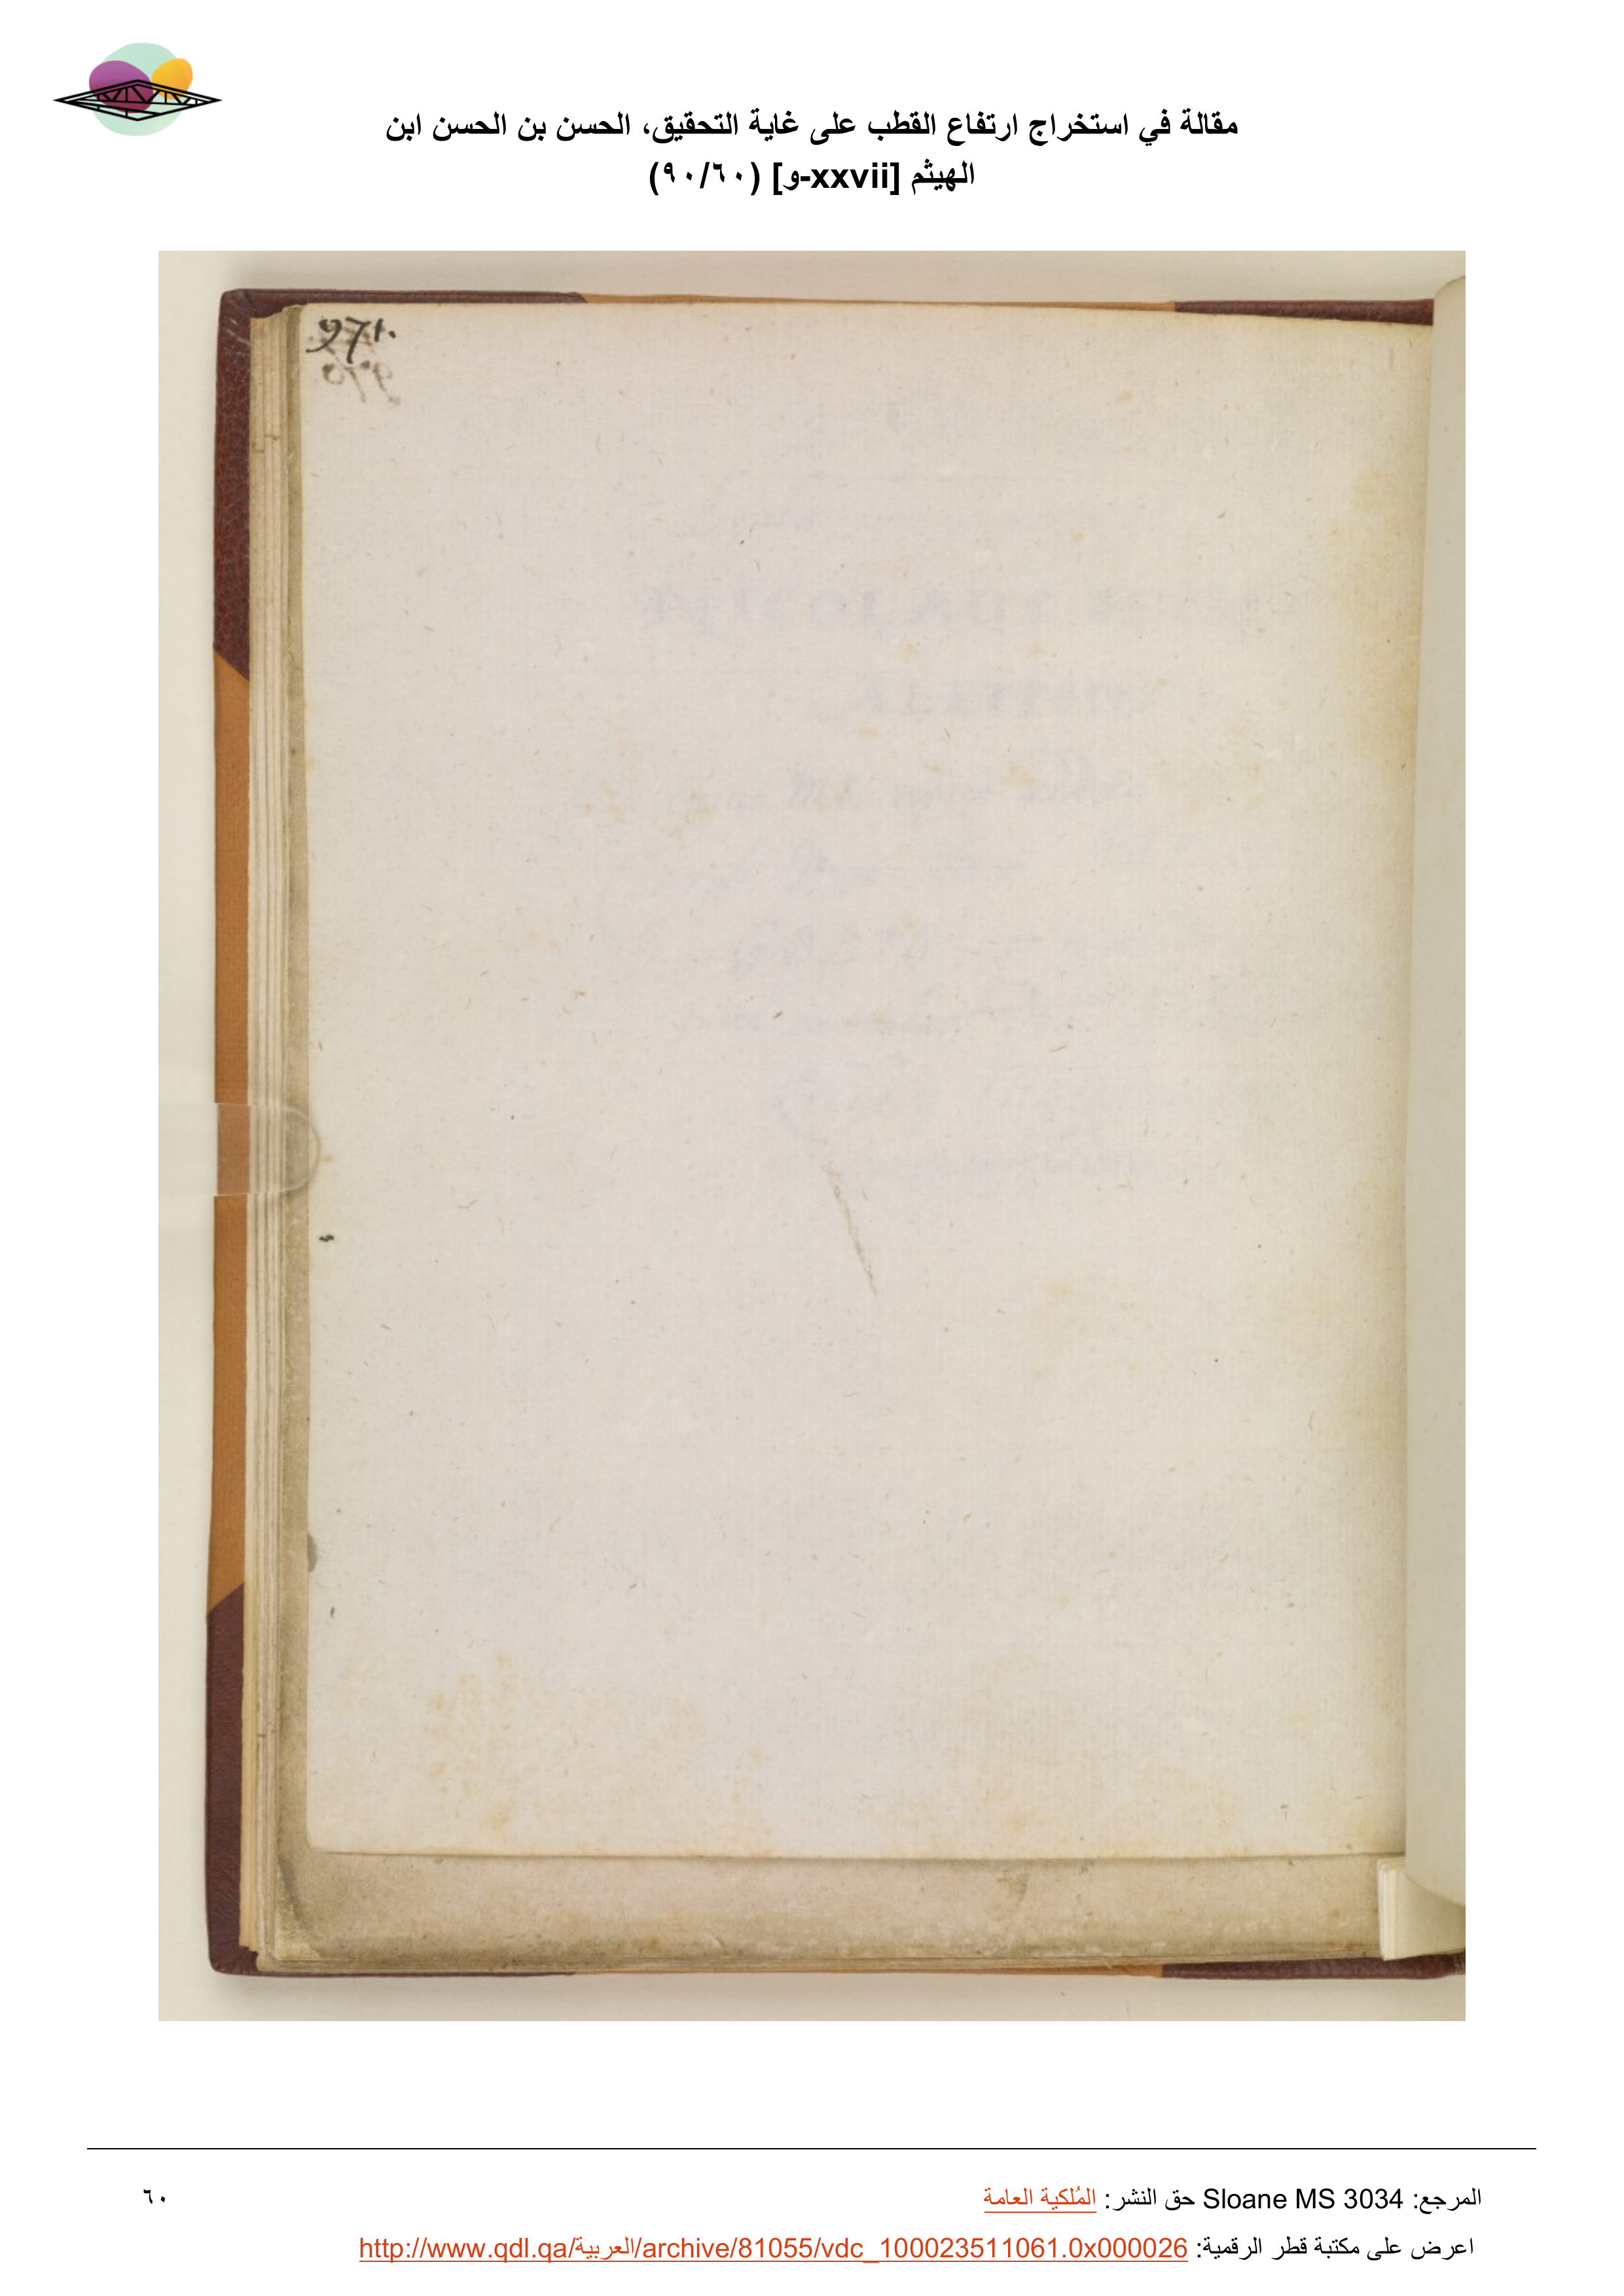 مقالة في استخراج ارتفاع القطب على غاية التحقيق، الحسن بن الحسن ابن
الهيثم [xxvii-و] (٩٠/٦٠)
971.
المرجع: Sloane MS 3034 حق النشر: المُلكية العامة
٦٠
اعرض على مكتبة قطر الرقمية: http://www.qdl.qa/العربية/archive/81055/vdc_100023511061.0x000026